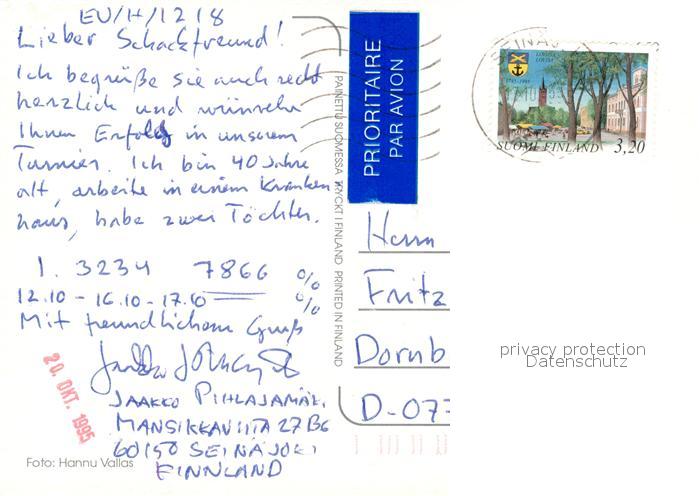 EU/H/1218
Lieber Schachfreund!
Ich begrüße sie auch recht
herzlich und wünsche
Ihnen Erfolg in unserem
Turnier. Ich bin 40 Jahre
alt, arbeite in einem Kranken-
haus, habe zwei Töchter.
1. 3234 7866 %
12.10 - 16.10 - 17.10 %
Mit freundlichem Gruß
JAAKKO PIHLAJAMÄKI
MANSIKKAVIITA 27 B6
60150 SEINÄJOKI
FINNLAND
20. OKT. 1995
Foto: Hannu Vallas
PAINETTU SUOMESSA TRYCKT I FINLAND PRINTED IN FINLAND
PRIORITAIRE
PAR AVION
LOVIISA
LOVISA
1745-1995
SUOMI FINLAND 3,20
Herrn
Fritz
Dornb
D-077
privacy protection
Datenschutz